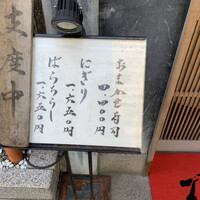 支度中
おまかせ寿司
四.四〇〇円
にぎり
一.六五〇円
ばらちらし
一.六五〇円